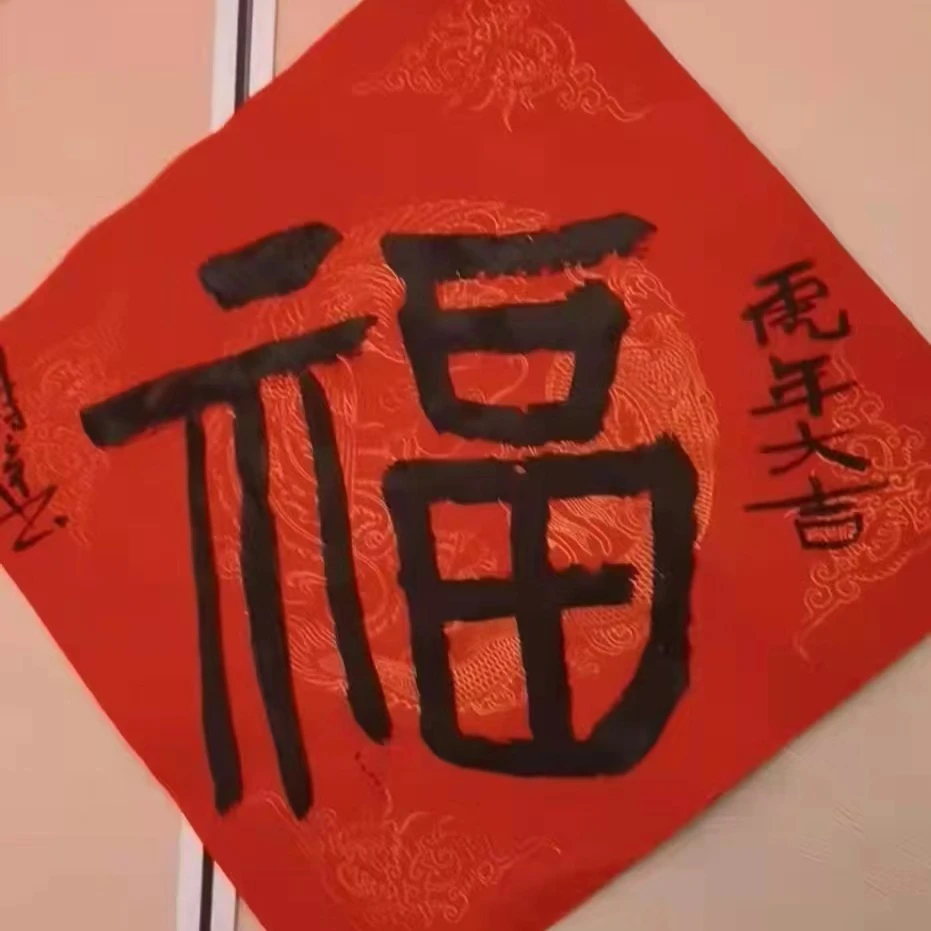 福
虎年大吉